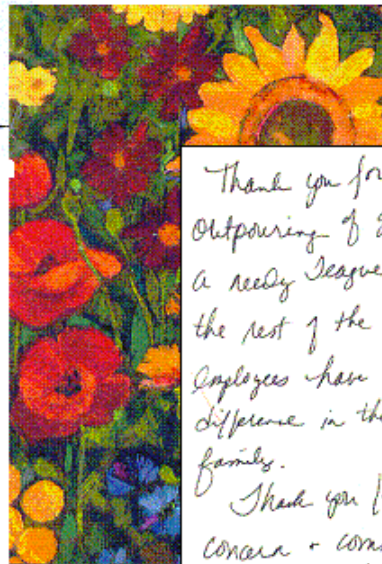 Thank you for
outpouring of
a needy Teague
the rest of the
employees have
difference in the
family.
Thank you
concern + com